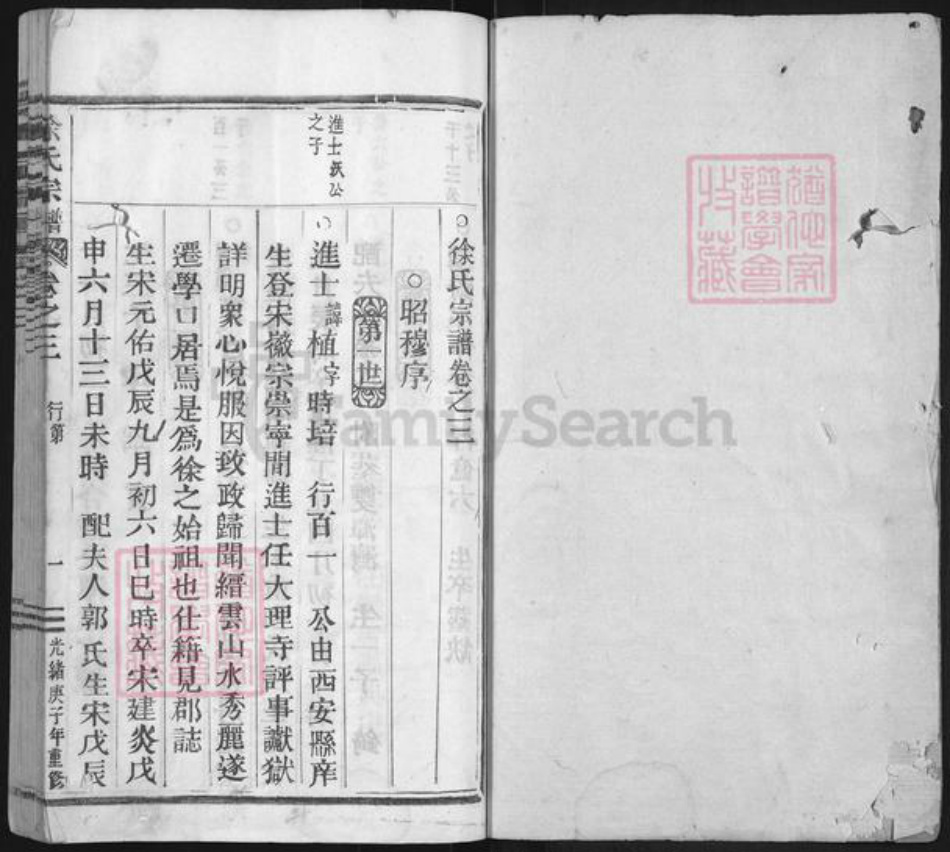 徐氏宗譜卷之三
昭穆序
第一世
進士諱植字時培 行百一 公由西安縣庠
生登宋徽宗崇寧間進士任大理寺評事讞獄
詳明衆心悅服因致政歸聞縉雲山水秀麗遂
遷學口居焉是為徐之始祖也仕籍見郡誌
生宋元佑戊辰九月初六日巳時卒宋建炎戊
申六月十三日未時 配夫人郭氏生宋戊辰
進士公
之子
徐氏宗譜 卷之三 行第 一 光緒庚子年重修
譜學會
收藏
FamilySearch